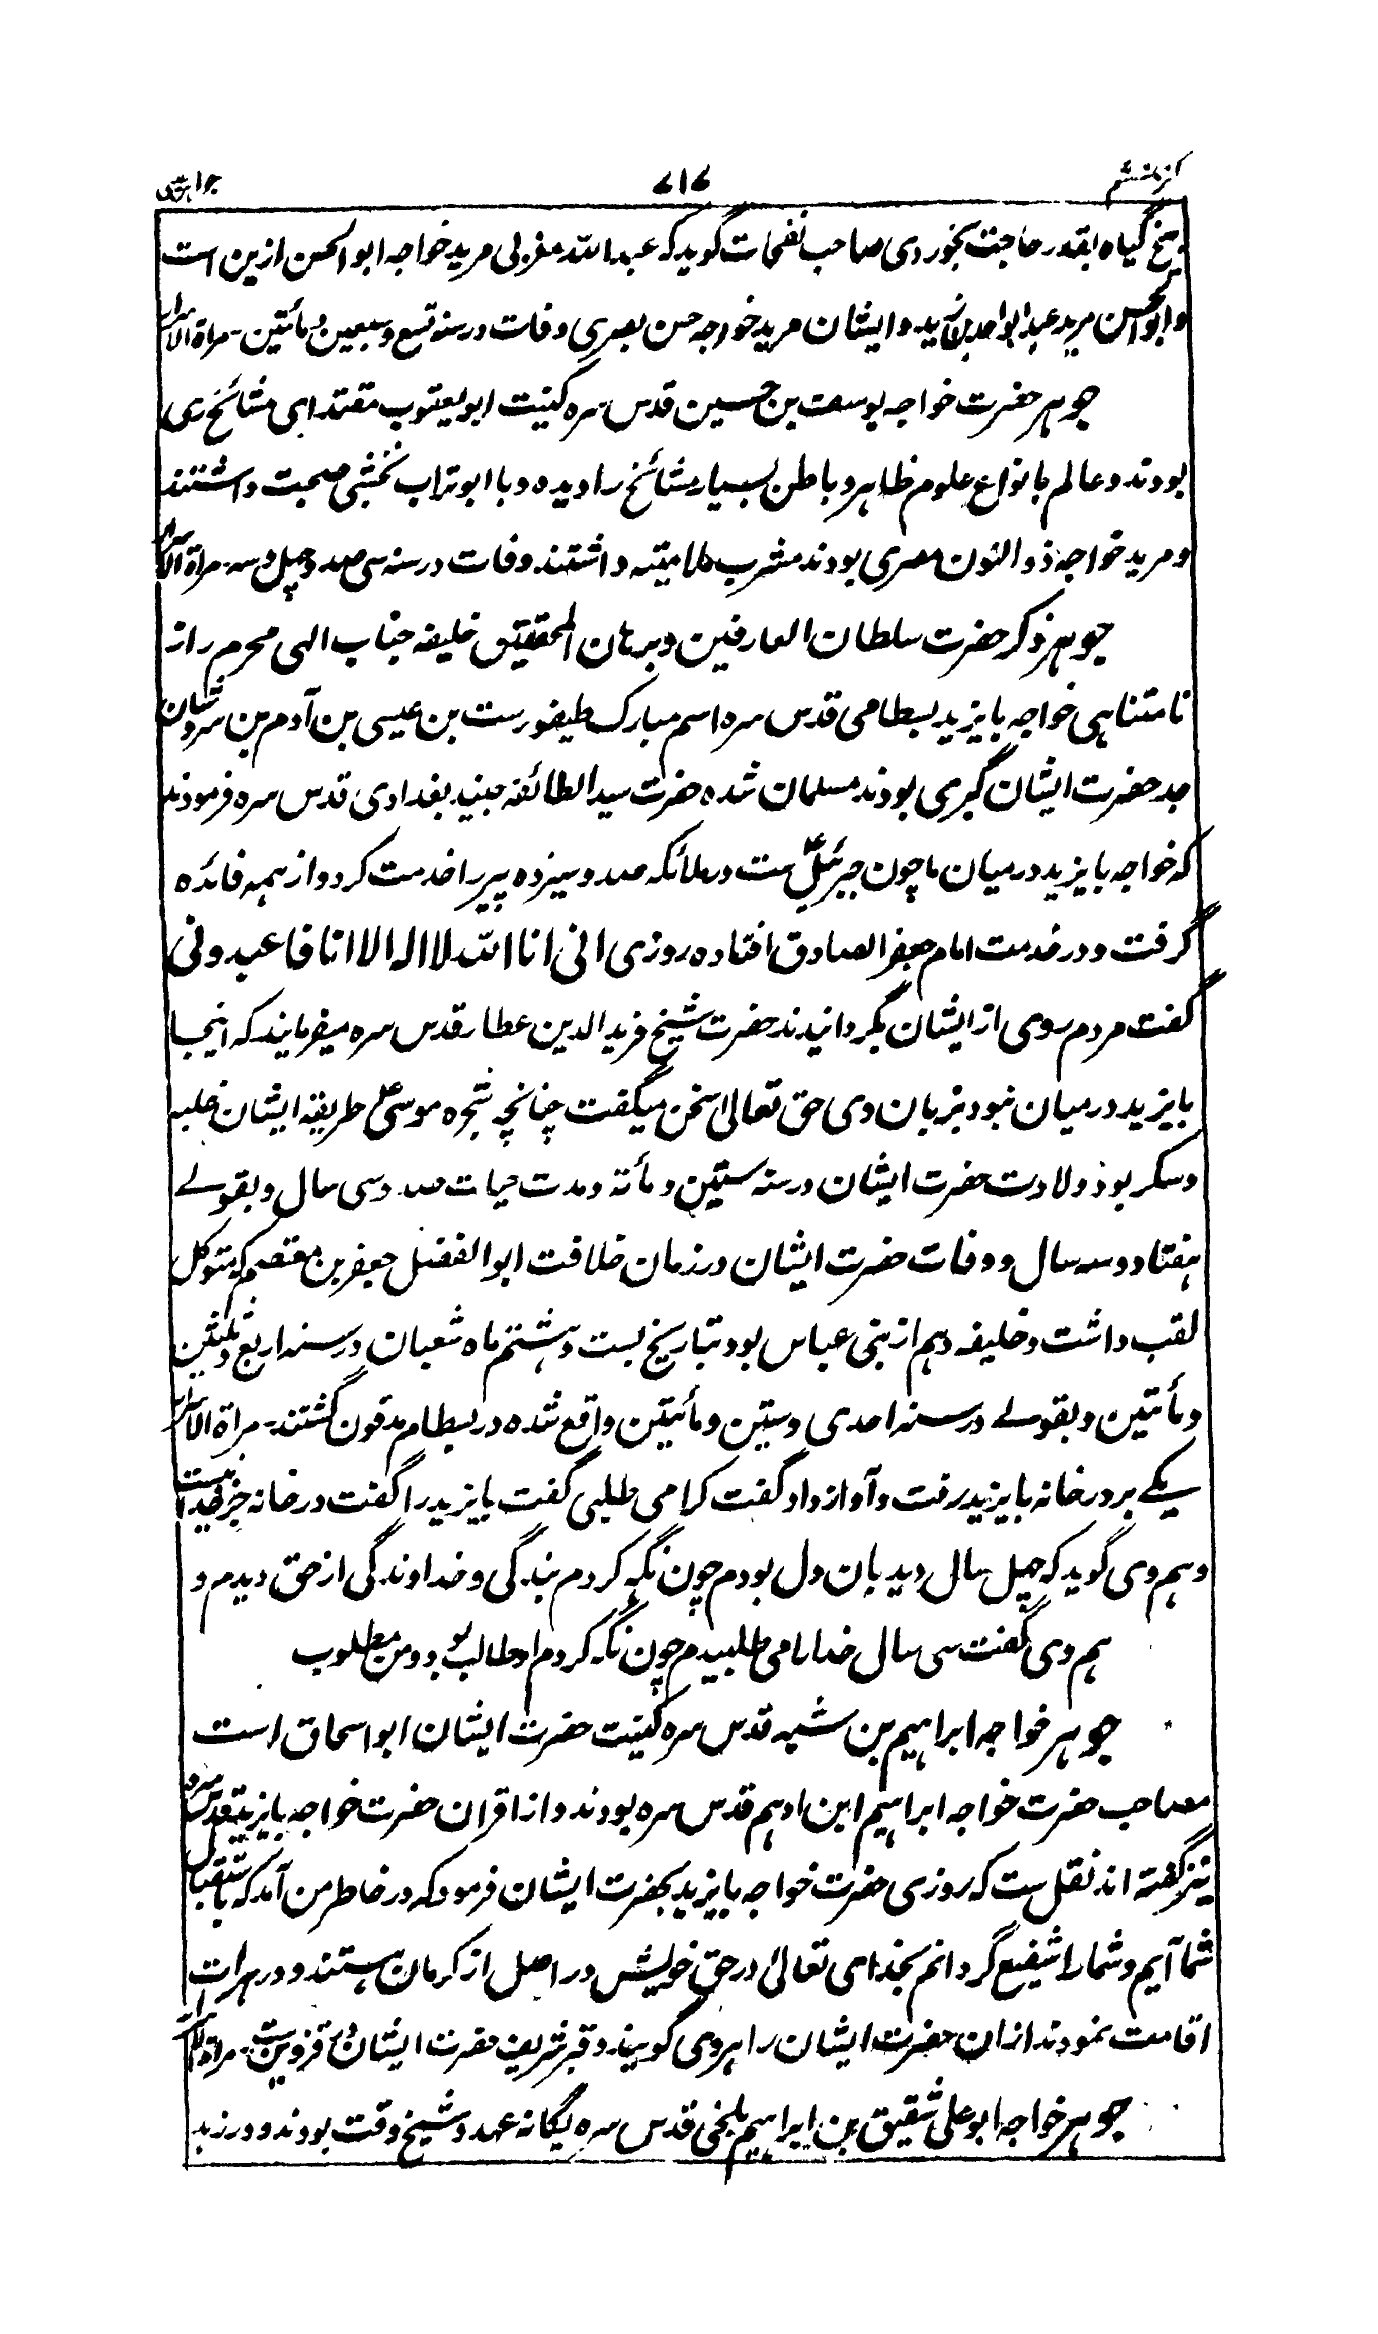 کنز ششم ۷۱۷ جواهر
بیخ گیاه بقدر حاجت بخوردی صاحب نفحات گوید که عبد الله مغربی مرید خواجه ابوالحسن ازین است
و ابوالحسن مرید عبدالواحد بن زید و ایشان مرید خواجه حسن بصری وفات در سنه تسع و سبعین و مأئتین ـ مراة الاسرار
جوهر حضرت خواجه یوسف بن حسین قدس سره کنیت ابویعقوب مقتدای مشائخ ری
بودند و عالم بانواع علوم ظاهر و باطن بسیار مشائخ را دیده و با ابوتراب نخشبی صحبت داشتند
و مرید خواجه ذوالنون مصری بودند مشرب ملامتیه داشتند وفات در سنه سی صد و چهل و سه ـ مراة الاسرار
جوهر ذکر حضرت سلطان العارفین و برهان المحققین خلیفه جناب الهی محرم راز
نامتناهی خواجه بایزید بسطامی قدس سره اسم مبارک طیفورست بن عیسی بن آدم بن سروشان
جد حضرت ایشان گبری بودند مسلمان شده حضرت سید الطائفه جنید بغدادی قدس سره فرمودند
که خواجه بایزید در میان ما چون جبرئیلؑ ست در ملائکه صد و سیزده پیر را خدمت کرد و از همه فائده
گرفت و در خدمت امام جعفر الصادق افتاده روزی انی انا الله لا اله الا انا فاعبدونی
گفت مردم روی از ایشان بگردانیدند حضرت شیخ فرید الدین عطار قدس سره میفرمایند که اینجا
بایزید در میان نبود بزبان وی حق تعالی سخن میگفت چنانچه شجره موسیؑ طریقه ایشان غلبه
و سکر بود ولادت حضرت ایشان در سنه ستین و مأته و مدت حیات صد و سی سال و بقولے
هفتاد و سه سال و وفات حضرت ایشان در زمان خلافت ابوالفضل جعفر بن معتصم که متوکل
لقب داشت و خلیفه دهم از بنی عباس بود بتاریخ بست و هشتم ماه شعبان در سنه اربع و ثلثین
و مأتین و بقولے در سنه احدی و ستین و مأیتین واقع شده در بسطام مدفون گشتند ـ مراة الاسرار
یکے بر در خانه بایزید رفت و آواز داد گفت کرا می طلبی گفت بایزید را گفت در خانه جز خدا نیست
و هم وی گوید که چهل سال دیدبان دل بودم چون نگه کردم بندگی و خداوندگی از حق دیدم و
هم وی گفت سی سال خدا را می طلبیدم چون نگه کردم او طالب بود و من مطلوب
جوهر خواجه ابراهیم بن شیبه قدس سره کنیت حضرت ایشان ابواسحاق است
مصاحب حضرت خواجه ابراهیم ابن ادهم قدس سره بودند و از اقران حضرت خواجه بایزید قدس سره
نیز گفته اند نقل ست که روزی حضرت خواجه بایزید بحضرت ایشان فرمود که در خاطر من آمد که باستقبال
شما آیم و شما را شفیع گردانم بخدای تعالی در حق خویش در اصل از کرمان هستند و در هرات
اقامت نمودند ازان حضرت ایشان را هروی گویند و قبر شریف حضرت ایشان در قزوین ست ـ مراة الاسرار
جوهر خواجه ابوعلی شقیق بن ابراهیم بلخی قدس سره یگانه عهد و شیخ وقت بودند و در زهد